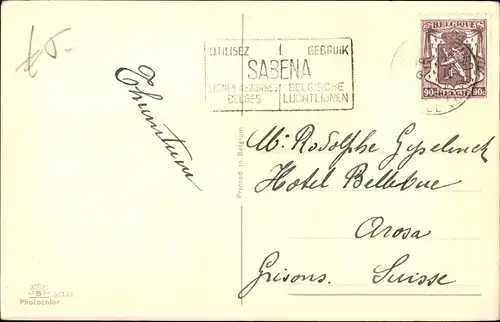 UTILISEZ GEBRUIK
SABENA
LIGNES AERIENNES BELGISCHE
BELGES LUCHTLIJNEN
BELGIQUE
90c BELGIE 90c
Printed in Belgium
Mr. Rodolphe Gyselinck
Hotel Bellevue
Arosa
Grisons. Suisse
Photocolor